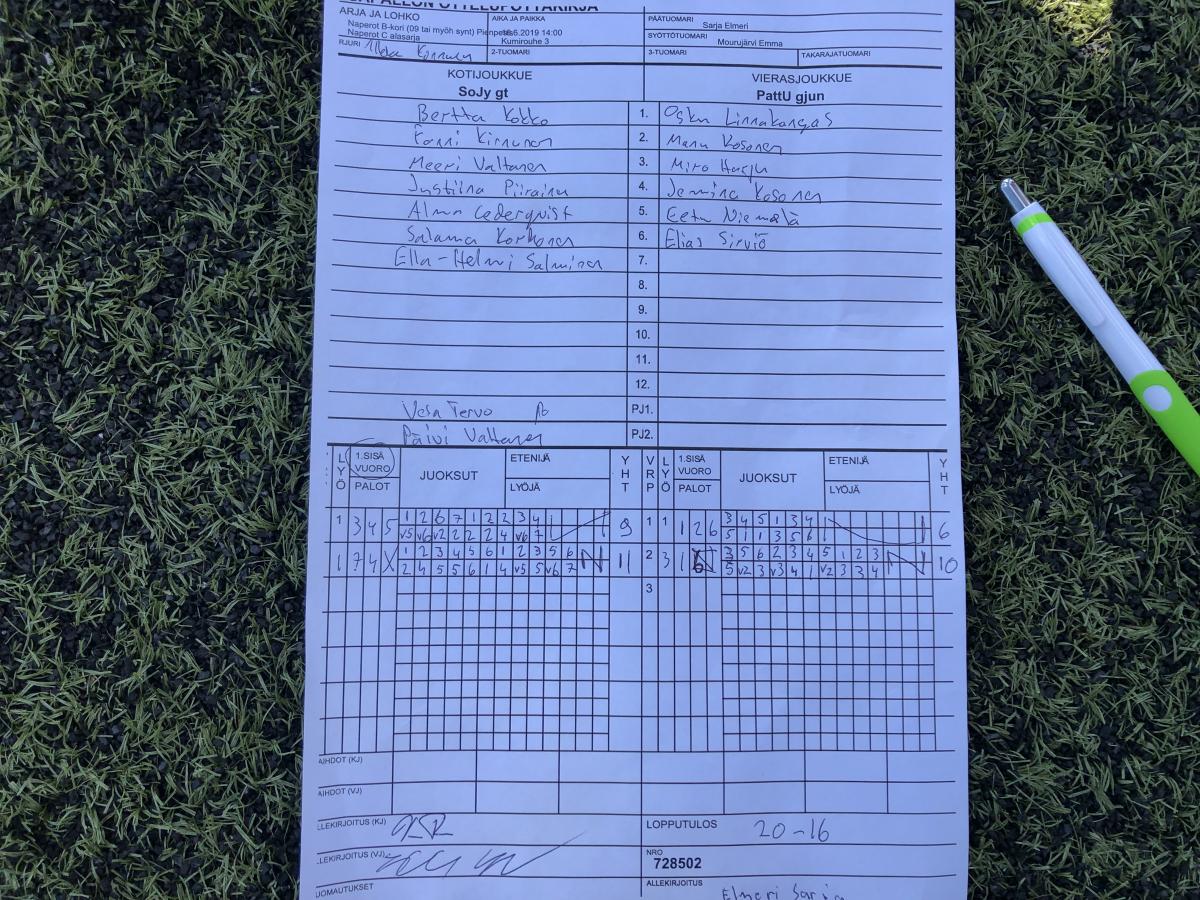 SARJA JA LOHKO
Naperot B-kori (09 tai myöh synt)
Naperot C alasarja
AIKA JA PAIKKA
6.2019 14:00
Kumirouhe 3
PÄÄTUOMARI
Sarja Elmeri
SYÖTTÖTUOMARI
Mourujärvi Emma
KIRJURI
2-TUOMARI
3-TUOMARI
TAKARAJATUOMARI
KOTIJOUKKUE
SoJy gt
VIERASJOUKKUE
PattU gjun
Bertta Kokko 1. Osku Linnakangas
Fanni Kinnunen 2. Manu Kosonen
Meeri Valtanen 3. Miro Harju
Justiina Piirainen 4. Jemina Kosonen
Alma Cederqvist 5. Eetu Niemelä
Salama Korhonen 6. Elias Sirviö
Ella-Helmi Salminen 7.
8.
9.
10.
11.
12.
Vesa Tervo PJ1.
Päivi Valtanen PJ2.
LYÖ 1.SISÄ VUORO PALOT JUOKSUT ETENIJÄ LYÖJÄ YHT VRP LYÖ 1.SISÄ VUORO PALOT JUOKSUT ETENIJÄ LYÖJÄ YHT
1 3 4 5 1 2 6 7 1 2 2 3 4 9 1 1 1 2 6 3 4 5 1 3 4 6
v5 v6 v2 2 2 2 4 v6 7 5 1 1 3 5 6
1 7 4 X 1 2 3 4 5 6 1 2 3 5 6 11 2 3 1 3 5 6 2 3 4 5 1 2 3 10
2 4 5 5 6 1 4 v5 5 v6 7 5 v2 3 v3 4 1 v2 3 3 4
3
VAIHDOT (KJ)
VAIHDOT (VJ)
ALLEKIRJOITUS (KJ)
LOPPUTULOS 20-16
ALLEKIRJOITUS (VJ)
NRO
728502
HUOMAUTUKSET
ALLEKIRJOITUS
Elmeri Sarja